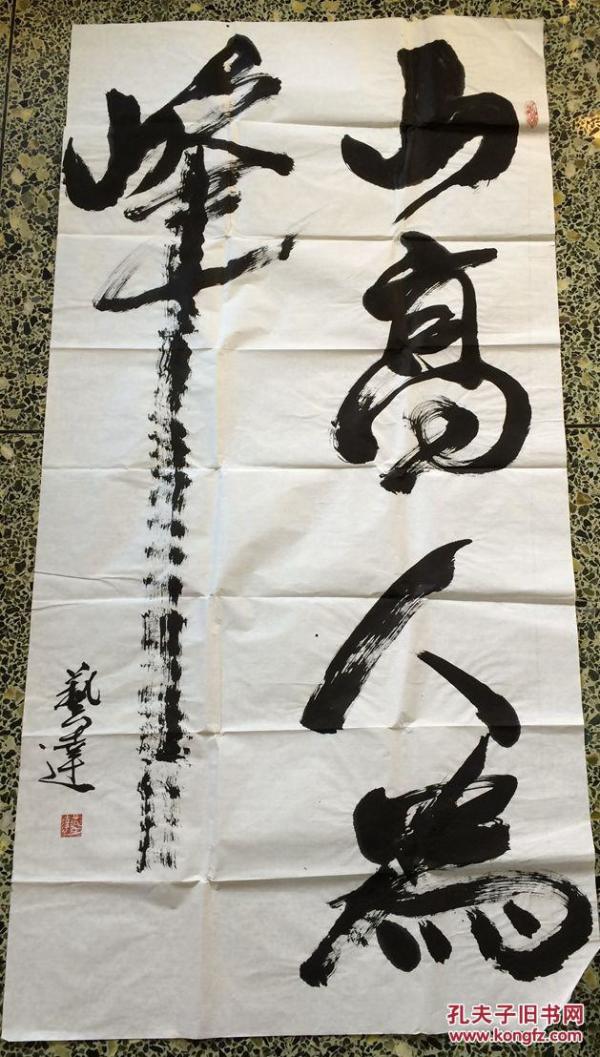 山高人為
峰
藝達
孔夫子旧书网
www.kongfz.com